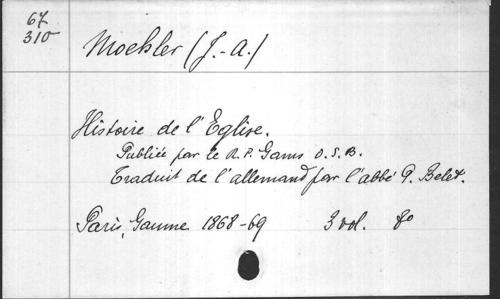 67
310
Moehler (J.-A.)
Histoire de l'Eglise.
Publiée par le R.P. Gams O.S.B.
Traduit de l'allemand par l'abbé P. Belet.
Paris, Gaume 1868-69 3 vol. 8º